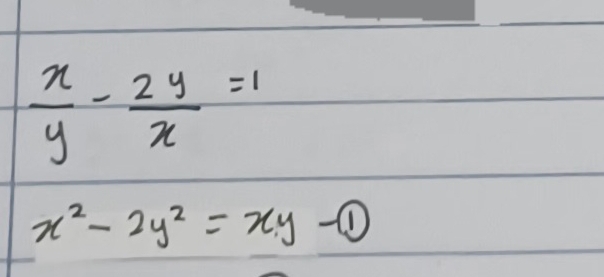 x/y - 2y/x = 1
x² - 2y² = xy - ①